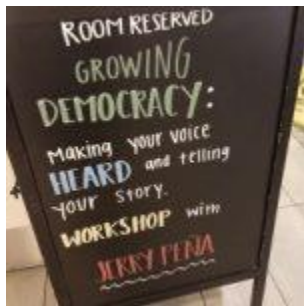 ROOM RESERVED
GROWING
DEMOCRACY:
Making your voice
HEARD and telling
your story.
WORKSHOP with
JERRY PEÑA